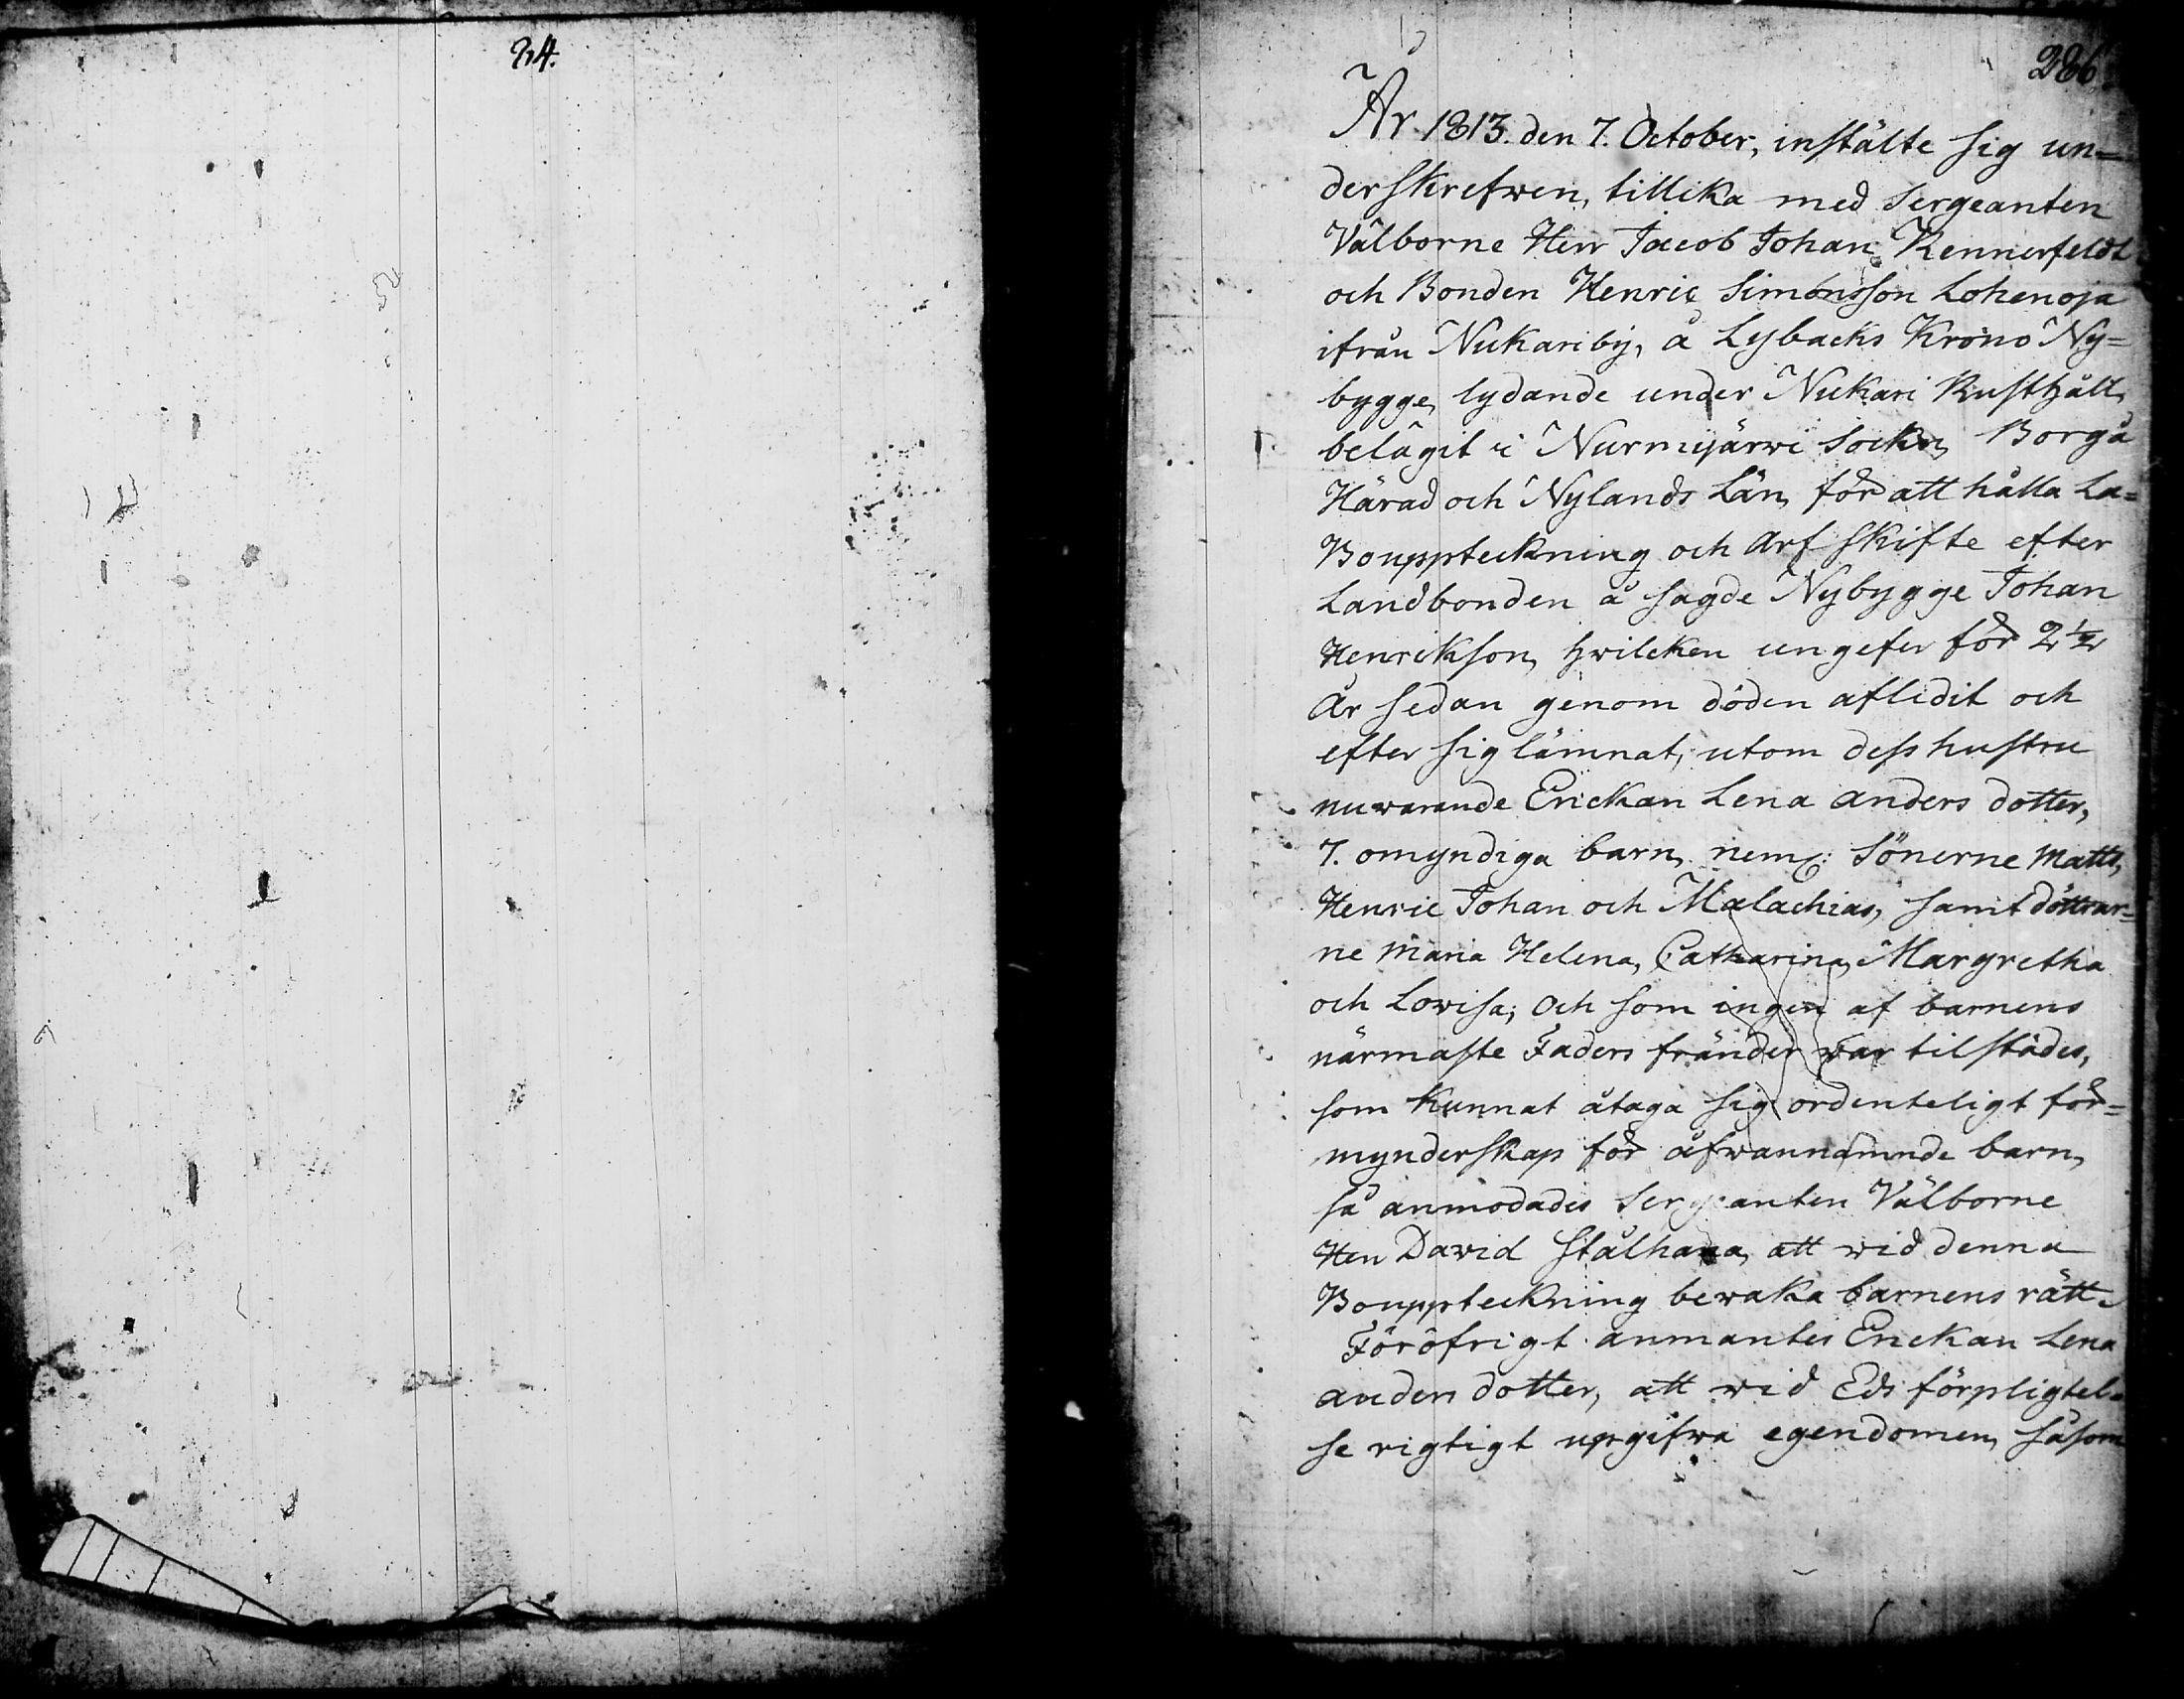 24.
286.
År 1813. den 7. October, instälte sig un=
derskrefwen, tillika med Sergeanten
Välborne Herr Jacob Johan Rennerfeldt
och Bonden Henric Simonsson Lohenoja
ifrån Nukariby, å Lybacks Krono Ny=
bygge, lydande under Nukari Rusthåll,
belägit i Nurmijärwi Sockn, Borgå
Härad och Nylands Län, för att hålla La=
Bouppteckning och Arfskifte efter
Landbonden å sagde Nybygge Johan
Henrikson, hvilcken ungefer för 2 1/2
År sedan genom döden aflidit och
efter sig lämnat, utom dess hustru
nuwarande Enckan Lena Anders dotter,
7. omyndiga barn, neml: Sönerne Matts,
Henric Johan och Malachias, samt döttrar=
ne Maria Helena, Catharina, Margretha
och Lovisa; Och som ingen af barnens
närmaste Faders fränder war tilstädes,
som kunnat åtaga sig ordenteligt för=
mynderskap för åfwannämnde barn,
så anmodades Sergeanten Välborne
Herr David Stålhana, att wid denna
Bouppteckning bewaka barnens rätt.
Föröfrigt anmantes Enckan Lena
Anders dotter, att wid Eds förpligtel=
se rigtigt upgifwa egendomen, såsom